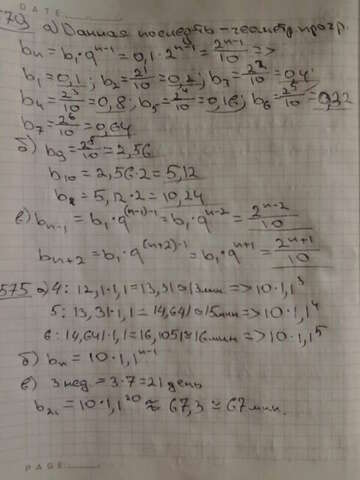 DATE
570 а) Данная последть – геометр. прогр.
bn = b1·q^n-1 = 0,1·2^n-1 = 2^n-1/10 =>
b1 = 0,1; b2 = 2^1/10 = 0,2; b3 = 2^2/10 = 0,4;
b4 = 2^3/10 = 0,8; b5 = 2^4/10 = 0,16; b6 = 2^5/10 = 0,32
b7 = 2^6/10 = 0,64
б) b9 = 2^8/10 = 2,56
b10 = 2,56·2 = 5,12
= 5,12·2 = 10,24
в) bn-1 = b1·q^(n-1)-1 = b1·q^n-2 = 2^n-2/10
bn+2 = b1·q^(n+2)-1 = b1·q^n+1 = 2^n+1/10
575 а) 4: 12,1·1,1 = 13,31 ≈ 13мин => 10·1,1^3
5: 13,31·1,1 = 14,641 ≈ 15мин => 10·1,1^4
6: 14,641·1,1 = 16,1051 ≈ 16мин => 10·1,1^5
б) bn = 10·1,1^n-1
в) 3 нед. = 3·7 = 21 день
b21 = 10·1,1^20 ≈ 67,3 ≈ 67 мин.
PAGE